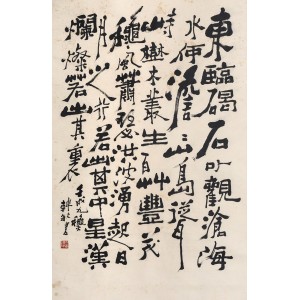 東臨碣石以觀滄海
水何澹〻山島竦
峙樹木叢生百艸豐茂
穐風蕭瑟洪波湧起日
月之行若出其中星漢
爛燦若出其裏